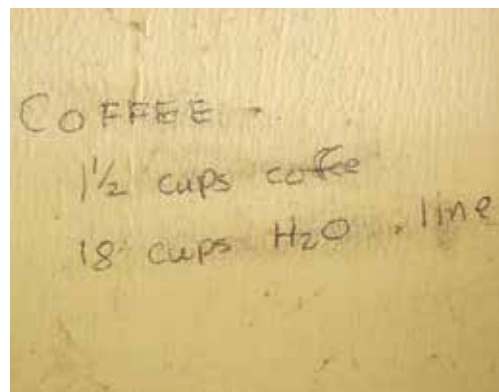 COFFEE -
1½ cups coffe
18 cups H₂O . line